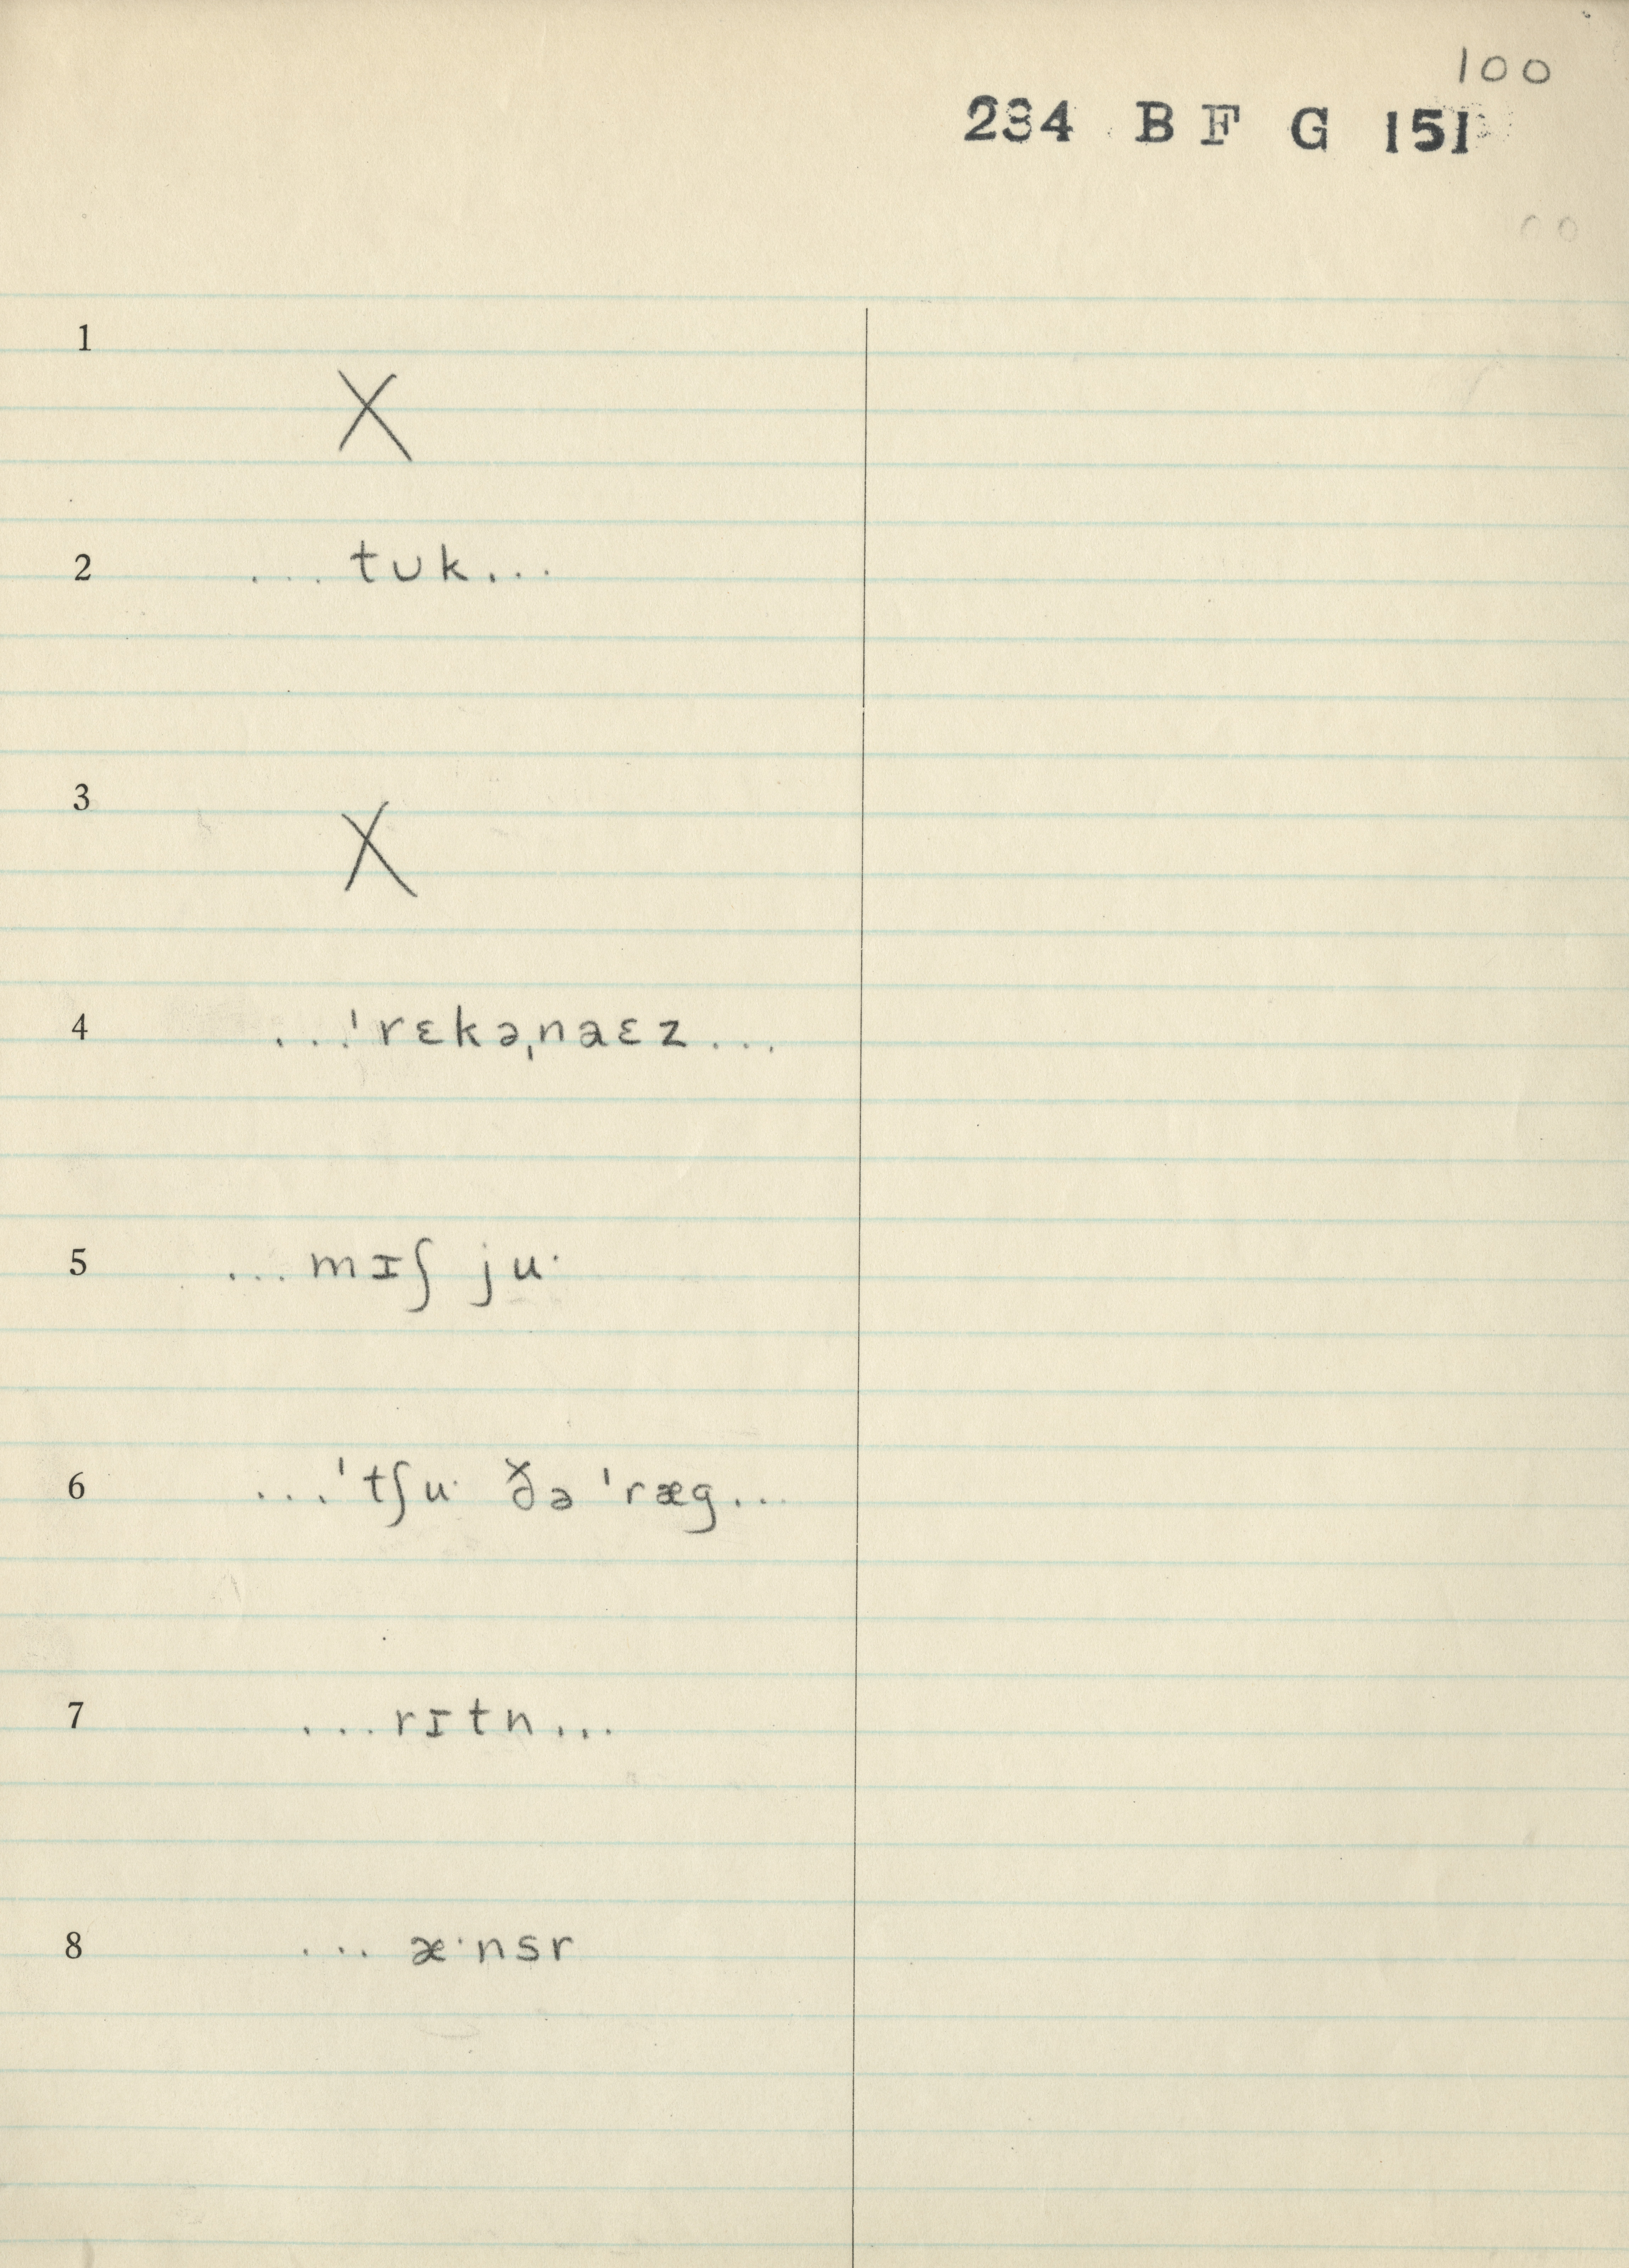 100
234 B F G 151
1
X
2 ... tʊk...
3
X
4 ...ˈrɛkəˌnaɛz...
5 ...mɪʃ ju·
6 ...ˈtʃu· ðə ˈræg...
7 ...rɪtn...
8 ... æ·nsr